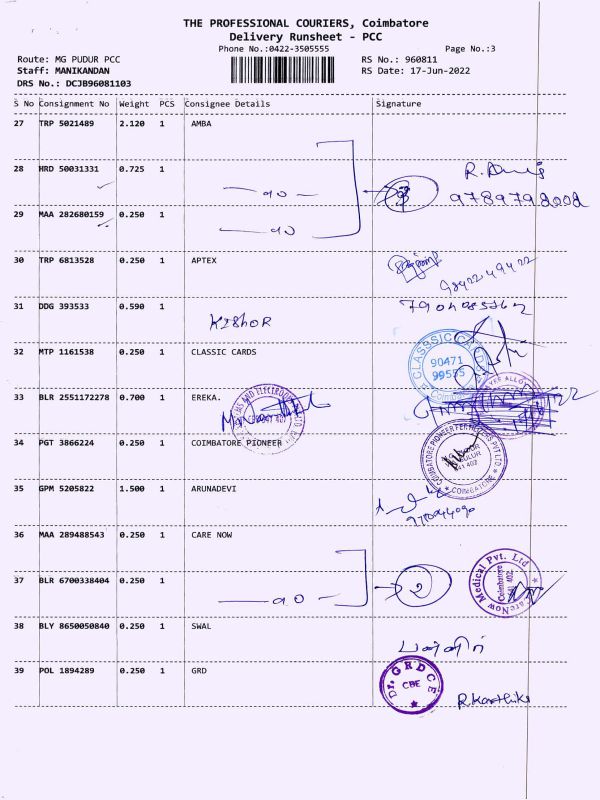 THE PROFESSIONAL COURIERS, Coimbatore
Delivery Runsheet - PCC
Phone No.:0422-3505555 Page No.:3
Route: MG PUDUR PCC RS No.: 960811
Staff: MANIKANDAN RS Date: 17-Jun-2022
DRS No.: DCJB96081103
S No Consignment No Weight PCS Consignee Details Signature
27 TRP 5021489 2.120 1 AMBA
28 HRD 50031331 0.725 1
29 MAA 282680159 0.250 1
30 TRP 6813528 0.250 1 APTEX
9842249422
31 DDG 393533 0.590 1 KISHOR
32 MTP 1161538 0.250 1 CLASSIC CARDS
CLASSSIC CARDS
90471
99555
33 BLR 2551172278 0.700 1 EREKA.
34 PGT 3866224 0.250 1 COIMBATORE PIONEER
COIMBATORE PIONEER FERTILIZERS PVT LTD
641 402
COIMBATORE
35 GPM 5205822 1.500 1 ARUNADEVI
36 MAA 289488543 0.250 1 CARE NOW
CareNow Medical Pvt. Ltd
Coimbatore
641 402.
37 BLR 6700338404 0.250 1
2
38 BLY 8650050840 0.250 1 SWAL
39 POL 1894289 0.250 1 GRD
Dr. GRDCE
CBE
R Karthika